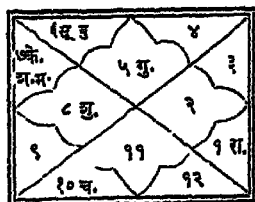 ६सू बु
४
७के.
श.म.
५ गु.
३
८ शु.
२
९
११
१ रा.
१० च.
१२